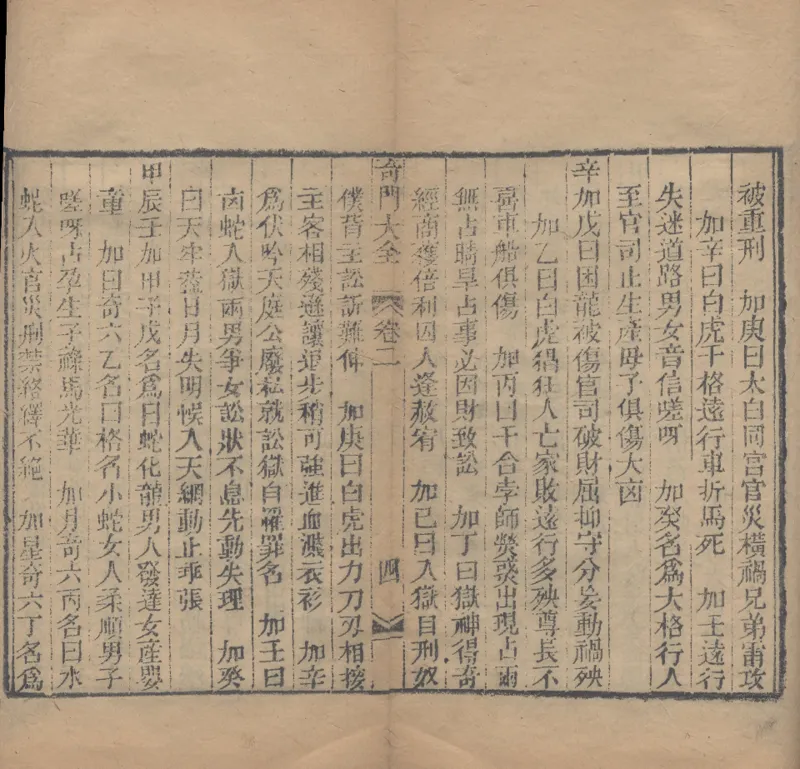 被重刑　加庚曰太白同宮官災橫禍兄弟雷攻
加辛曰白虎干格遠行車折馬死　加壬遠行
失迷道路男女音信嗟呀　加癸名為大格行人
至官司止生產母子俱傷大凶
辛加戊曰困龍被傷官司破財屈抑守分妄動禍殃
加乙曰白虎猖狂人亡家敗遠行多殃尊長不
喜車船俱傷　加丙曰干合孛師熒惑出現占雨
無占晴旱占事必因財致訟　加丁曰獄神得奇
經商獲倍利囚人逢赦宥　加己曰入獄自刑奴
奇門大全　卷二　四
僕背主訟訴難伸　加庚曰白虎出力刀刃相接
主客相殘遜讓退步稍可強進血濺衣衫　加辛
為伏吟天庭公廢私就訟獄自罹罪名　加壬曰
凶蛇入獄兩男爭女訟狀不息先動失理　加癸
曰天牢華蓋日月失明悞入天網動止乖張
甲辰壬加甲子戊名為曰蛇化龍男人發達女產嬰
童　加日奇六乙名曰格名小蛇女人柔順男子
嗟呀占孕生子祿馬光華　加月奇六丙名曰水
蛇入火官災刑禁繹不絕　加星奇六丁名為